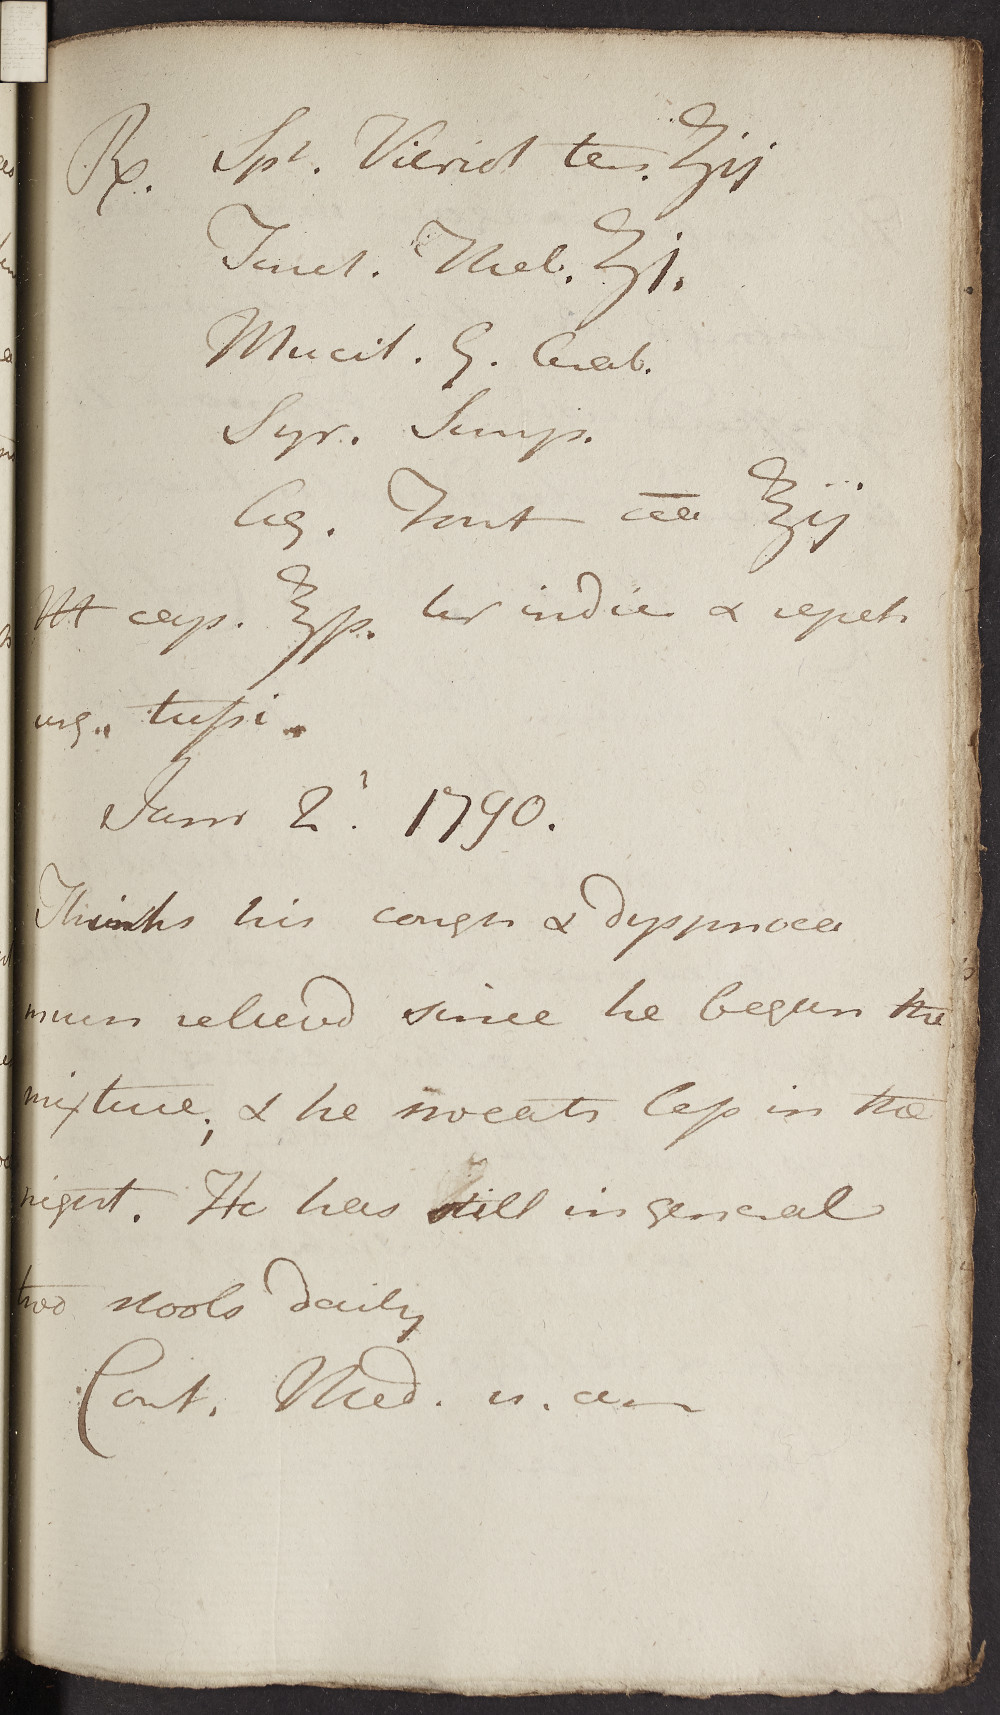 Rx. Spt. Vitriol ten. ʒij
Tinct. Theb. ʒj.
Mucil. G. Arab.
Syr. Simp.
Aq. Font aa ℥ij
Ut cap. ℥ſs. ter indies & repetr
urg. tuſsi.
Janr 2d. 1790.
Thinks his cough & dyspnoea
much relievd since he began the
mixture; & he sweats leſs in the
night. He has still in general
two stools daily
Cont. Med. u. am